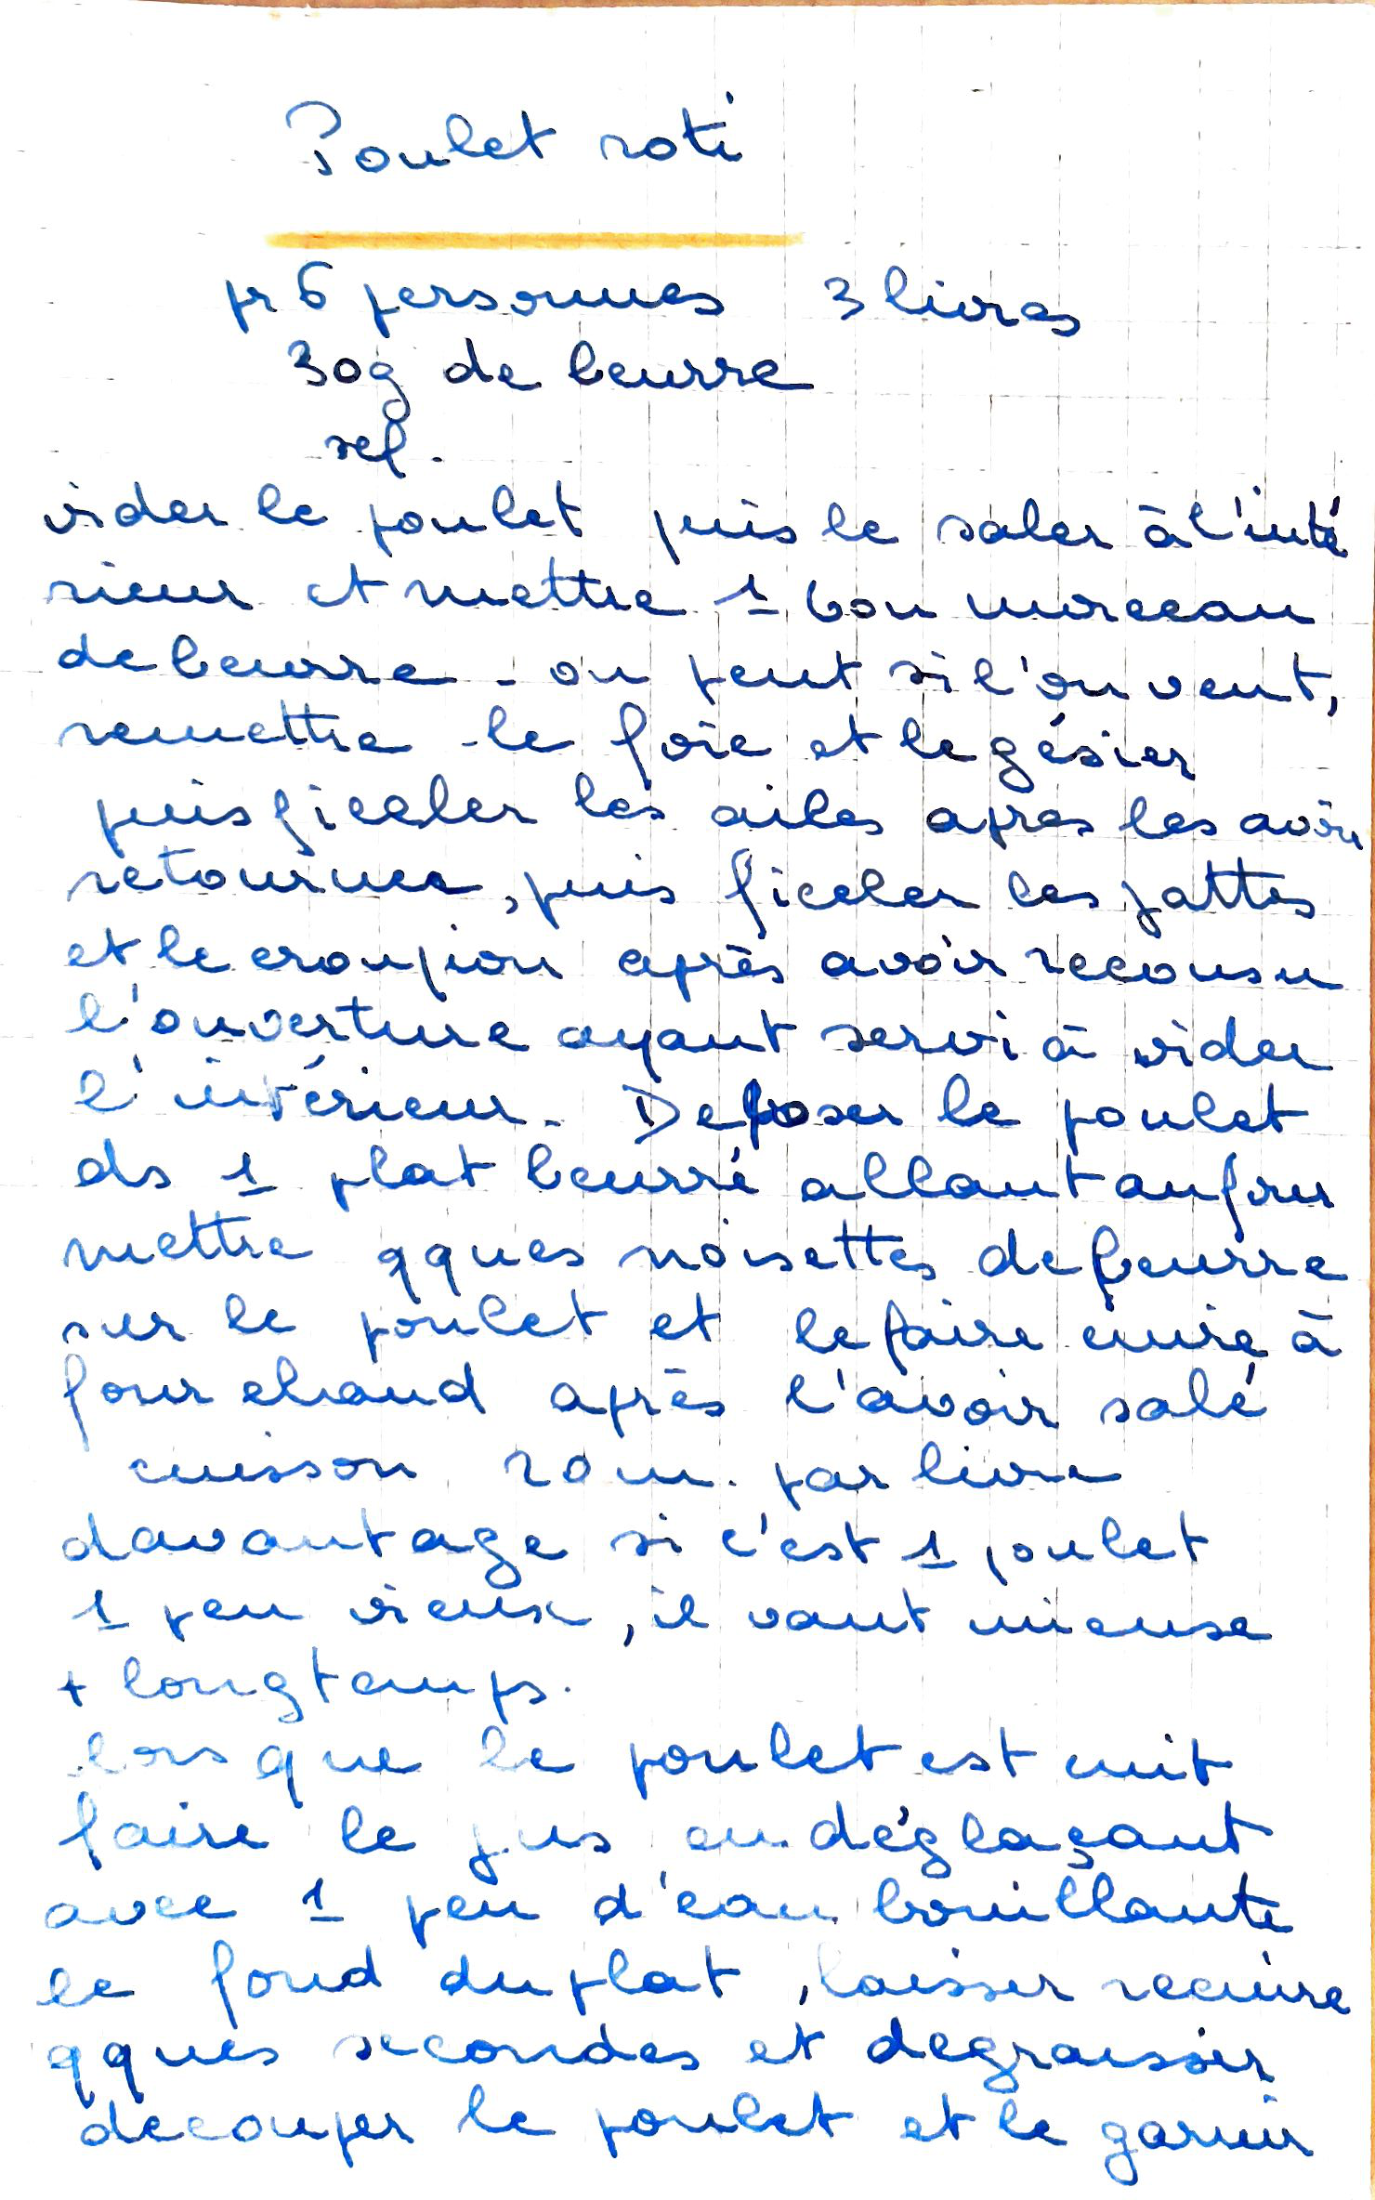 Poulet roti
pr 6 personnes 3 livres
30g de beurre
sel.
vider le poulet puis le saler à l'inté
rieur et mettre 1 bon morceau
de beurre - on peut si l'on veut,
remettre le foie et le gésier
puis ficeler les ailes apres les avoir
retournee, puis ficeler les pattes
et le croupion après avoir recousu
l'ouverture ayant servi à vider
l'intérieur. Deposer le poulet
ds 1 plat beurré allant au four
mettre qques noisettes de beurre
sur le poulet et le faire cuire à
four chaud après l'avoir salé
cuisson 20 m. par livre
davantage si c'est 1 poulet
1 peu vieux, il vaut mieux
+ longtemps.
lorsque le poulet est cuit
faire le jus en déglaçant
avec 1 peu d'eau bouillante
le fond du plat, laisser recuire
qques secondes et degraisser
decouper le poulet et le garnir